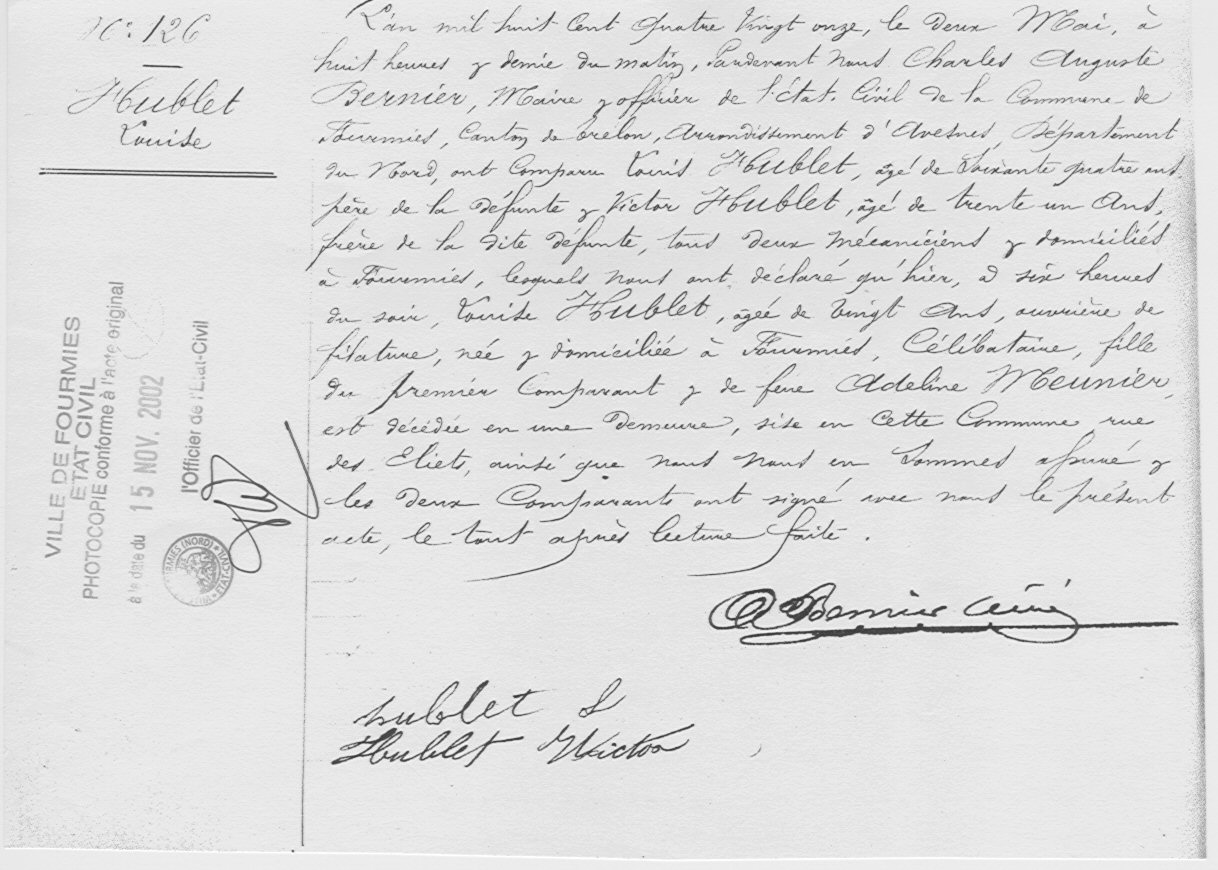 N.° 126
Hublet
Louise
L'an mil huit cent quatre vingt onze, le deux Mai, à
huit heures & demie du matin, Pardevant nous Charles Auguste
Bernier, Maire & officier de l'état-Civil de la Commune de
Fourmies, Canton de Trélon, Arrondissement d'Avesnes, Département
du Nord, ont Comparu Louis Hublet, âgé de Soixante quatre ans
père de la défunte & Victor Hublet, âgé de trente un Ans,
frère de la dite défunte, tous deux mécaniciens & domiciliés
à Fourmies, lesquels nous ont déclaré qu'hier, à six heures
du soir, Louise Hublet, âgée de vingt Ans, ouvrière de
filature, née & domiciliée à Fourmies, Célibataire, fille
du premier Comparant & de feue Adeline Meunier,
est décédée en une demeure, sise en cette Commune, rue
des Eliets, ainsi que nous nous en sommes assuré &
les deux Comparants ont signé avec nous le présent
acte, le tout après lecture faite.
Bernier
hublet L
Hublet Victor
VILLE DE FOURMIES
ETAT CIVIL
PHOTOCOPIE conforme à l'acte original
à la date du 15 NOV. 2002
l'Officier de l'Etat-Civil